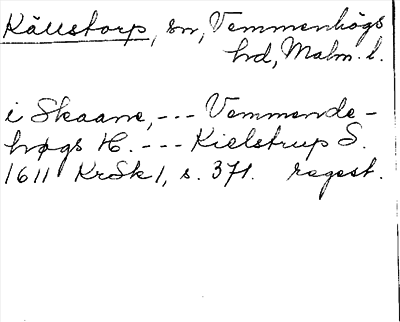 Källstorp, sn, Vemmenhögs
hd, Malm. l.
i Skaane, --- Vemmende-
høgs H. --- Kielstrup S.
1611 KrSk 1, s. 371. regest.